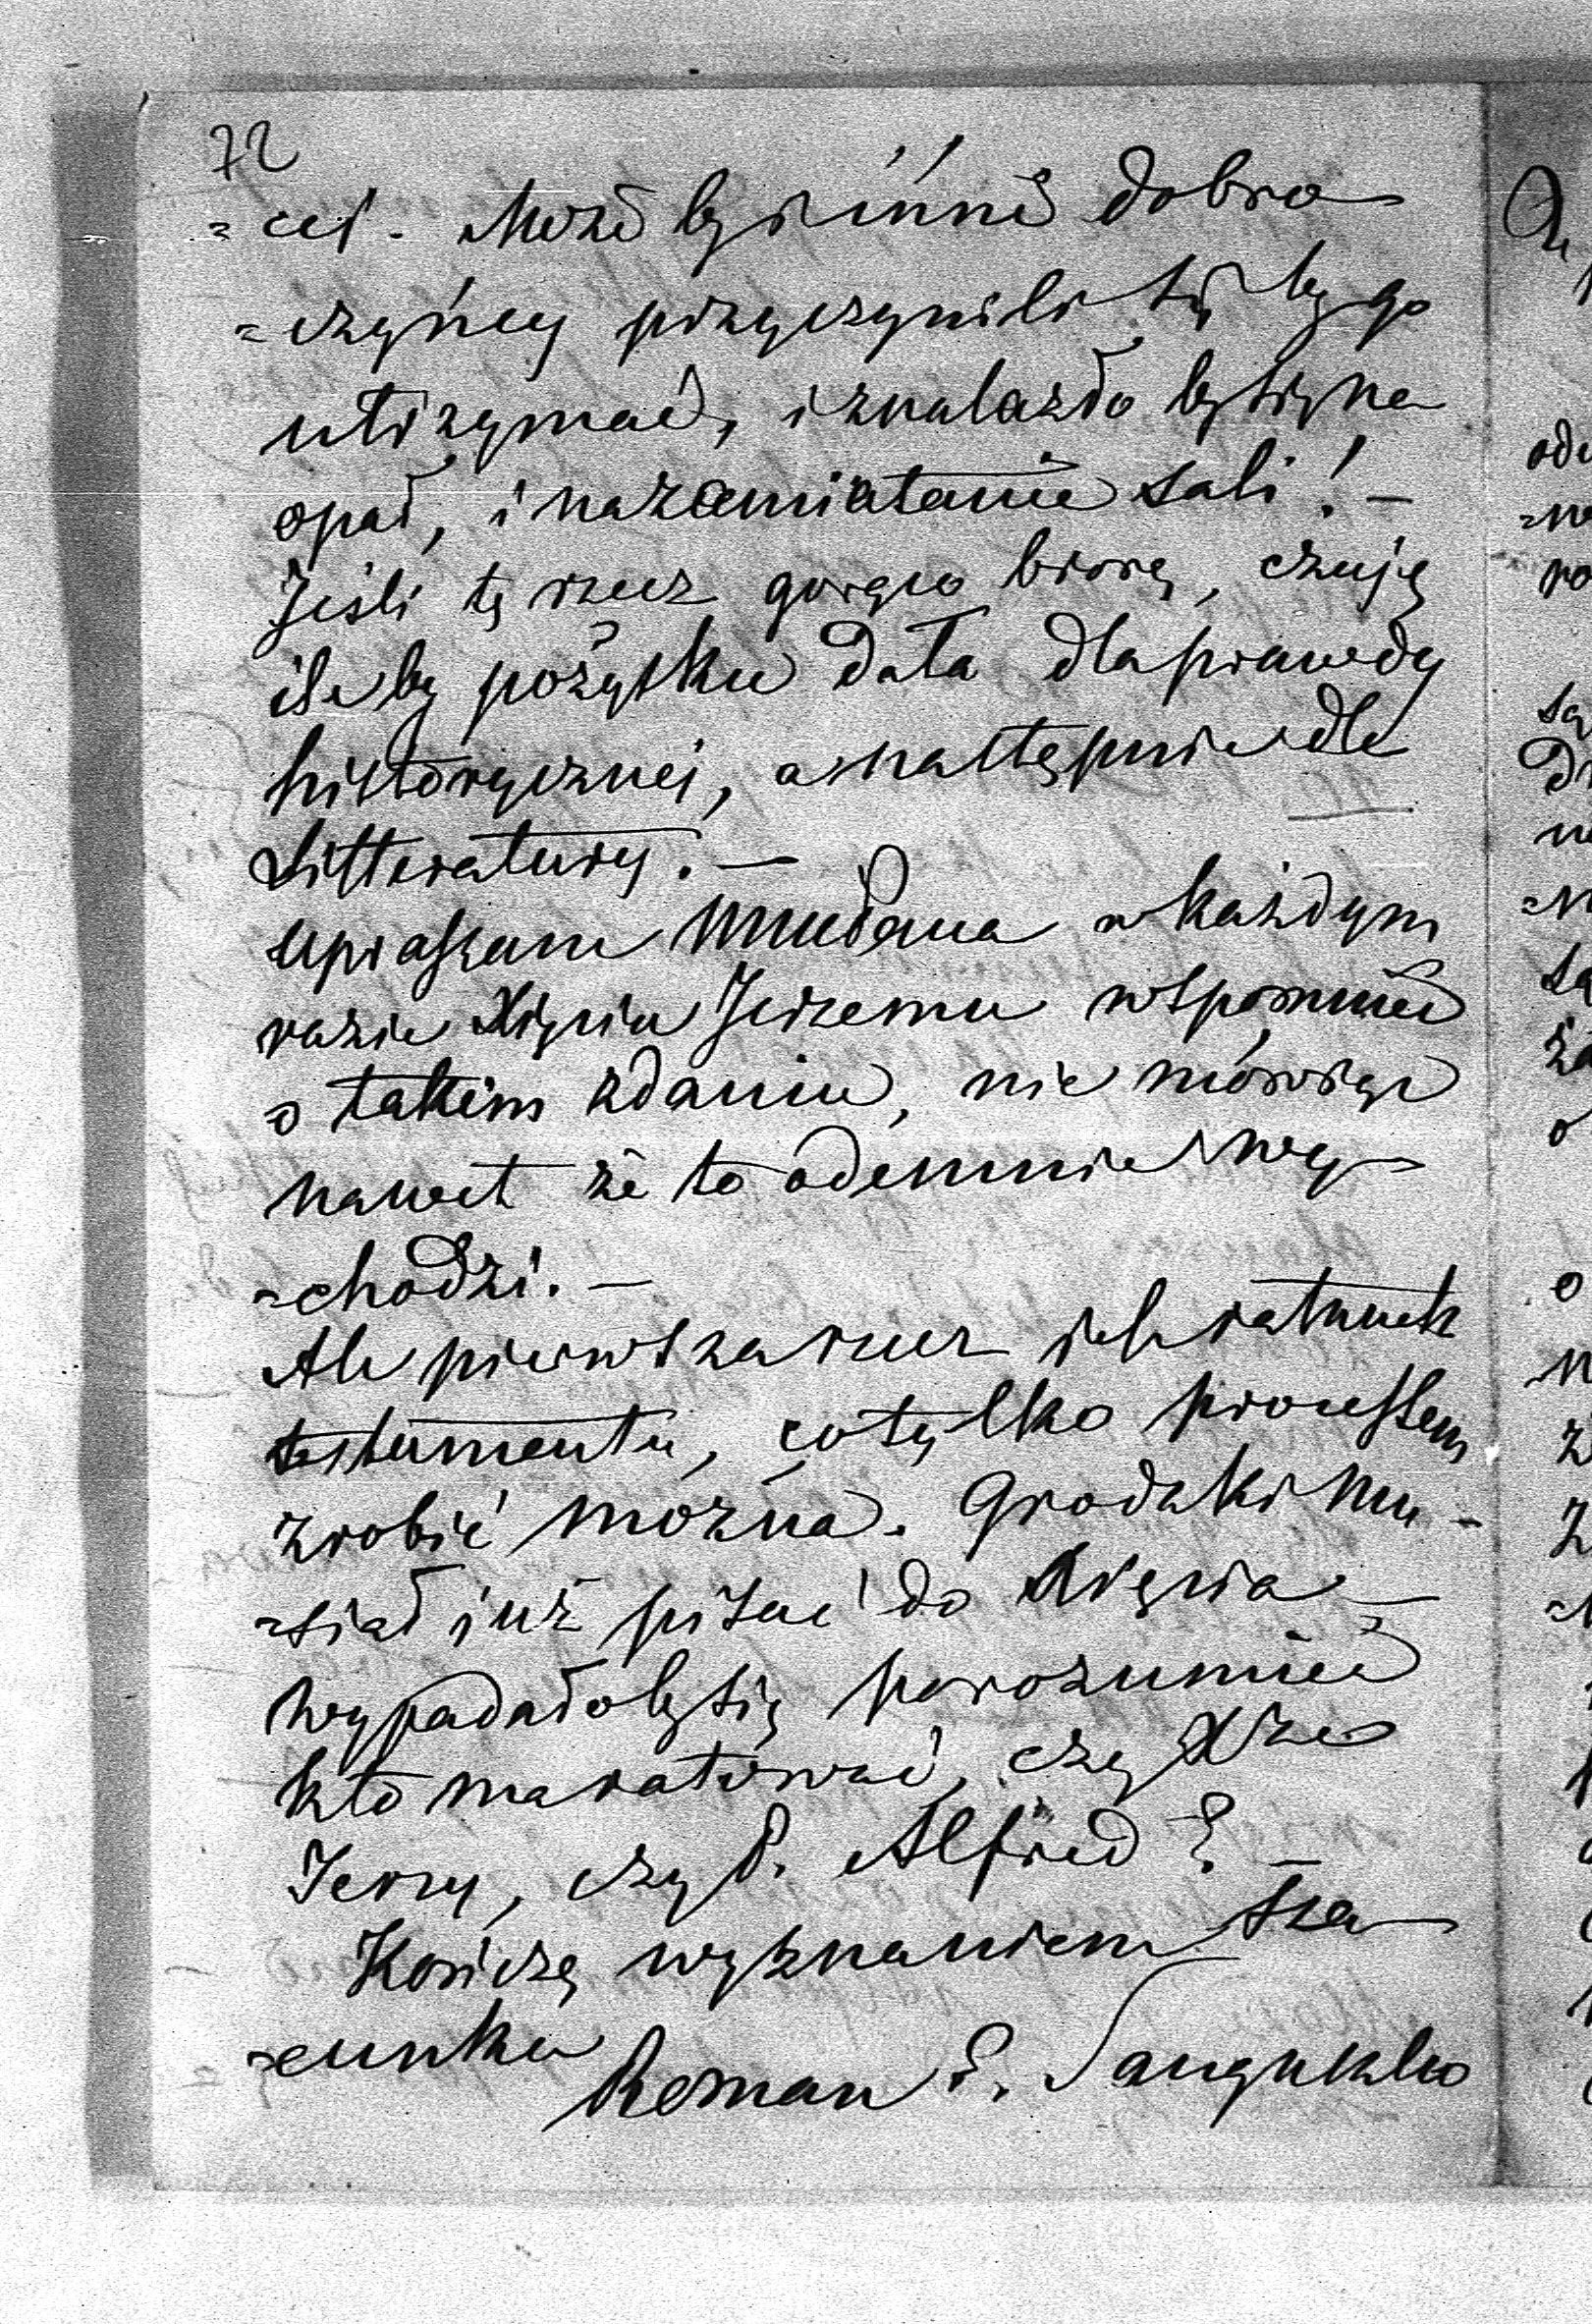 72
=cej. Może by i ínni dobro
=czyńcy przyczynili się by go
utrzymać, i znalazło by się na
opał, i na zamiatanie sali! —
Jeśli tę rzecz gorąco biorę, czuję
ile by pożytku dała dla prawdy
historycznej, a następnie dla
Litteratury. —
Upraszam WMudana w każdym
razie Xięciu Jerzemu wspomnieć
o takim zdaniu, nie mówiąc
nawet że to odemnie wy
=chodzi. —
Ale pierwsza rzecz jest ratunek
testamentu, co tylko processem
zrobić można. Grodzki mu-
=siał już pisać do Xięcia —
wypadało by się porozumieć
kto ma ratować, czy Xże
Jerzy, czy P. Alfred? —
Kończę wyznaniem sza
=cunku
Roman S. Sanguszko